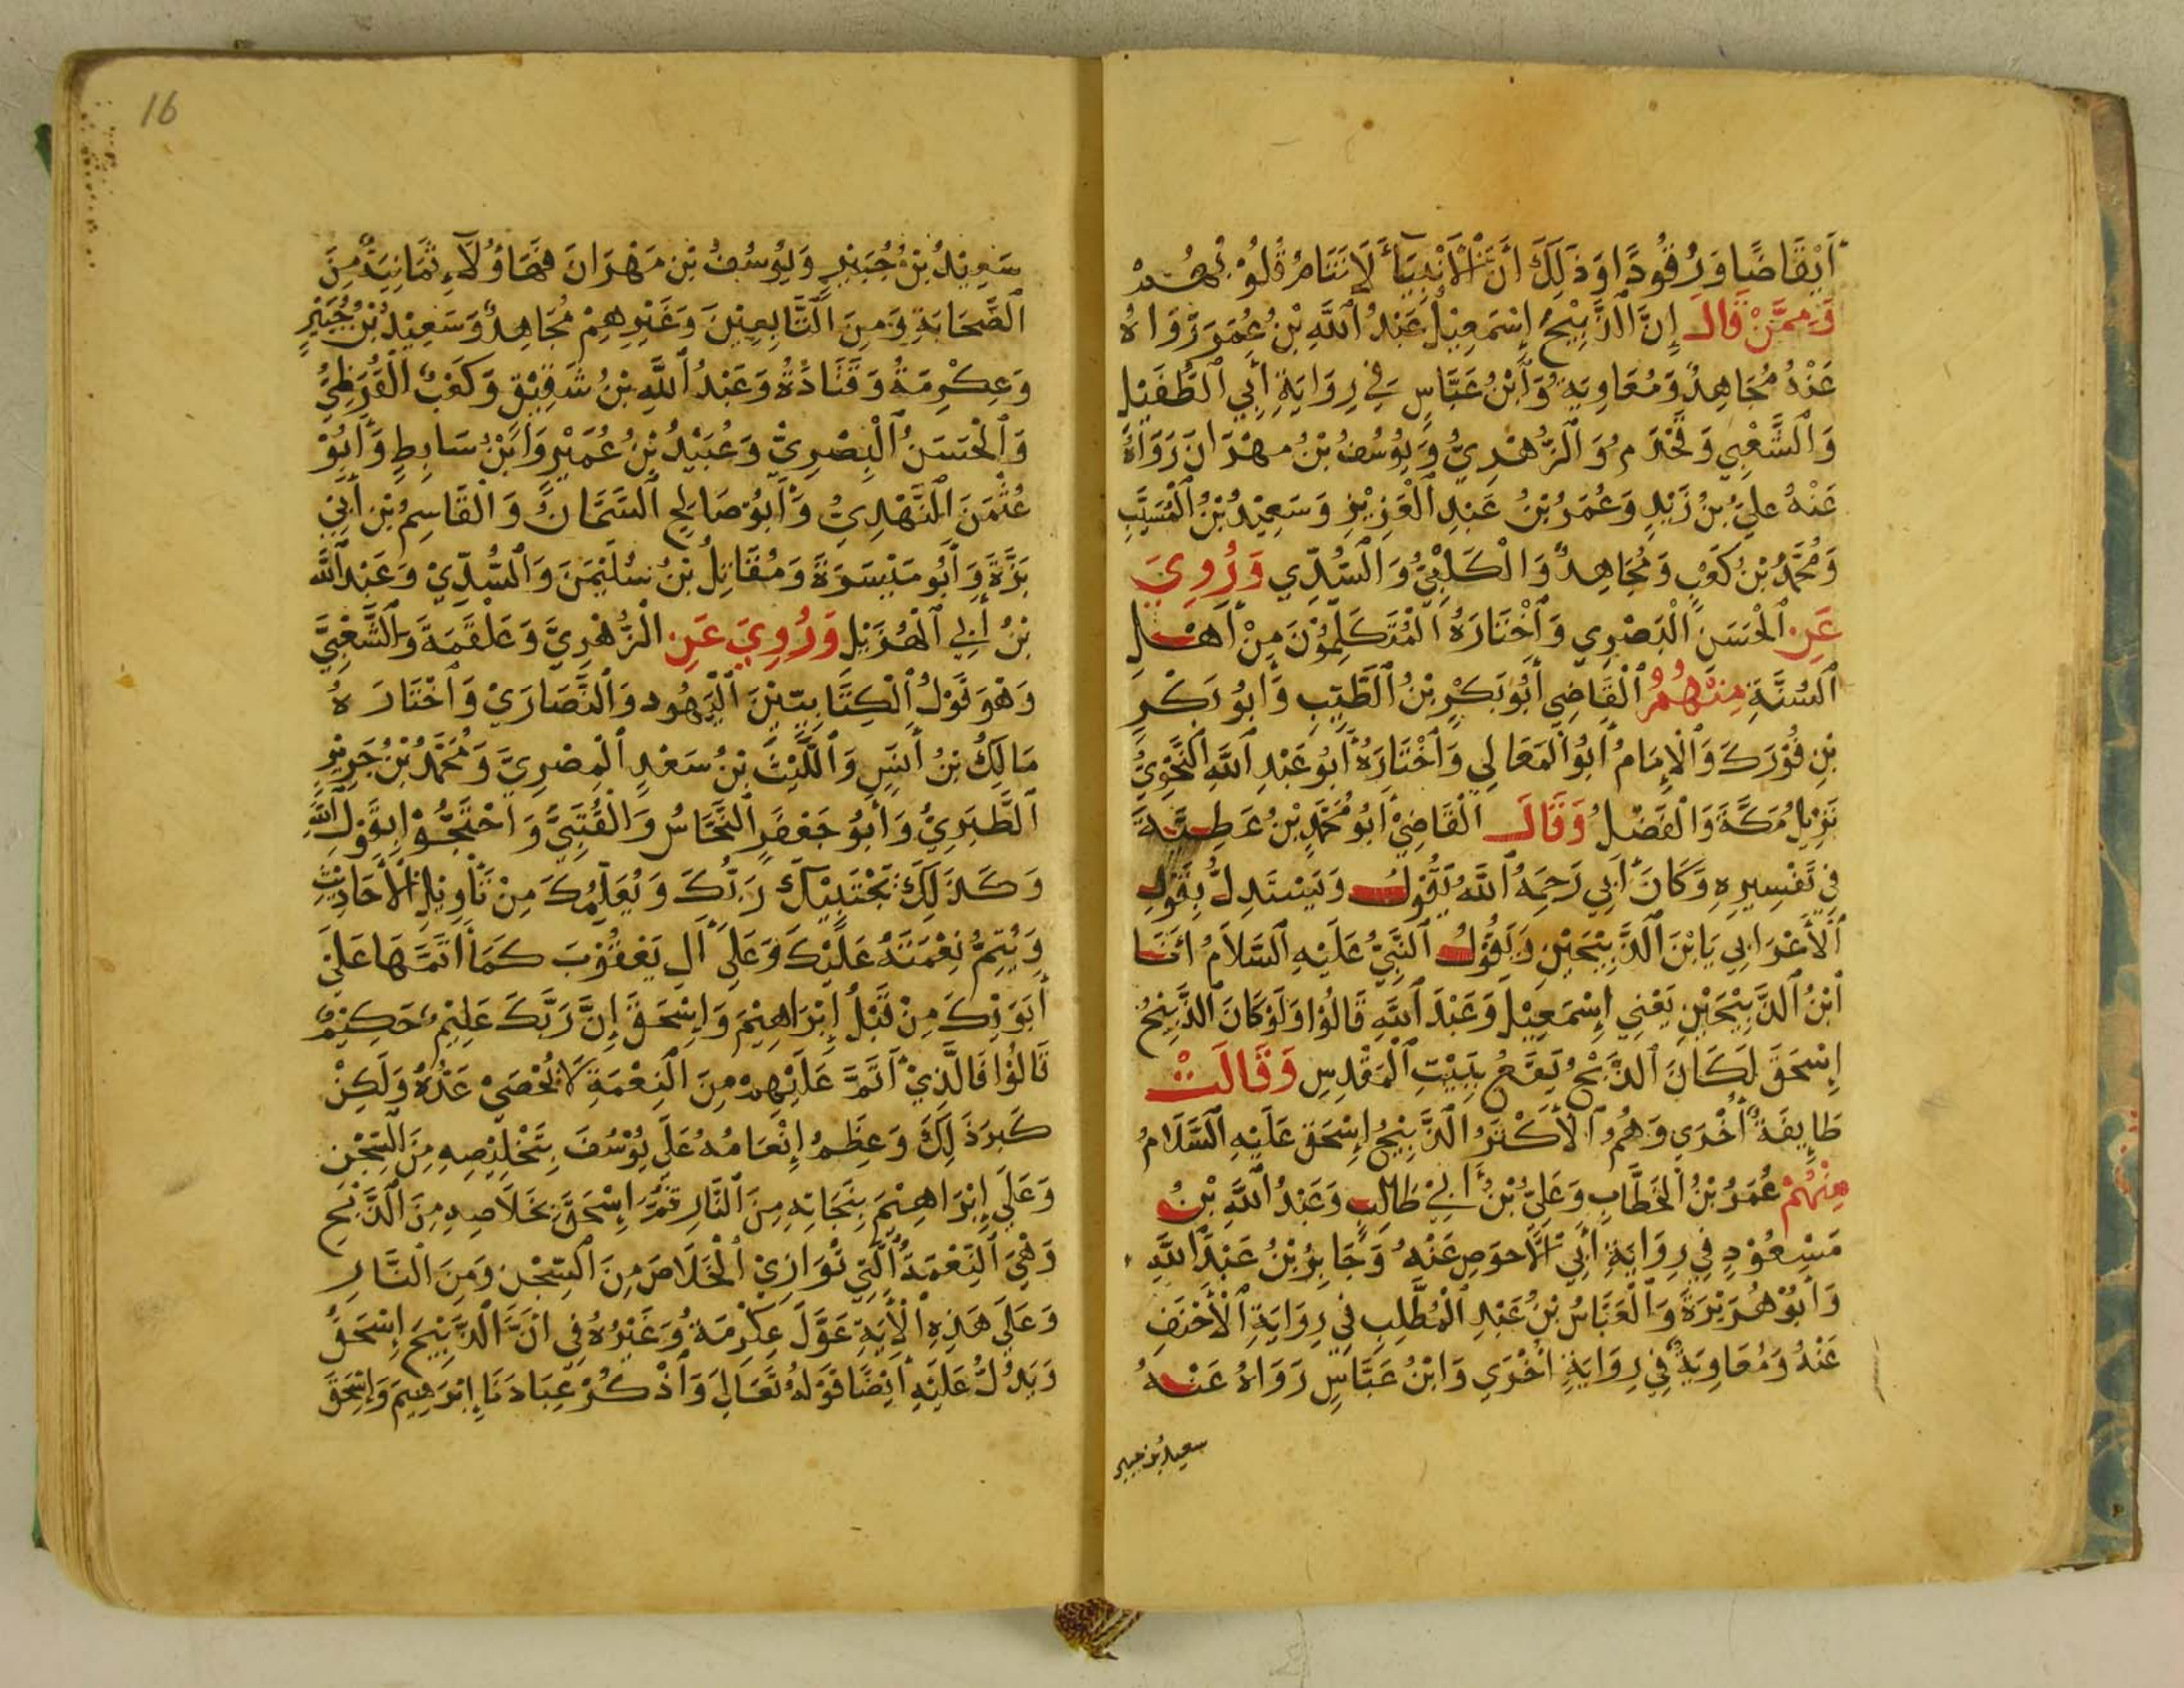 أَيْقَاضًا وَرُقُودًا وَذَلِكَ أَنَّ الْأَنْبِيَاءَ لَا تَنَامُ قُلُوْبُهُمْ
وَمِمَّنْ قَالَ إِنَّ الذَّبِيْحَ إِسْمَعِيْلُ عَبْدُ اللَّهِ بْنُ عُمَرَ رَوَاهُ
عَنْهُ مُجَاهِدٌ وَمُعَاوِيَةُ وَابْنُ عَبَّاسٍ فِي رِوَايَةِ أَبِي الطُّفَيْلِ
وَالشَّعْبِي وَمَخْرَم وَالزُّهْرِيُّ وَيُوسُفُ بْنُ مِهْرَانَ رَوَاهُ
عَنْهُ عَلِيُّ بْنُ زَيْدٍ وَعُمَرُ بْنُ عَبْدِ الْعَزِيْزِ وَسَعِيْدُ بْنُ الْمُسَيَّبِ
وَمُحَمَّدُ بْنُ كَعْبٍ وَمُجَاهِدٌ وَالْكَلْبِيُّ وَالسُّدِّي وَرُوِيَ
عَنِ الْحَسَنِ الْبَصْرِي وَاخْتَارَهُ الْمُتَكَلِّمُوْنَ مِنْ أَهْلِ
السُّنَّةِ مِنْهُمُ الْقَاضِي أَبُو بَكْرٍ بْنُ الطَّيِّبِ وَأَبُو بَكْرٍ
بْنِ فُوْرَكَ وَالْإِمَامُ أَبُو الْمَعَالِي وَاخْتَارَهُ أَبُو عَبْدِ اللَّهِ النَّحْوِيُّ
نَزِيْلُ مَكَّةَ وَالْفَضْلُ وَقَالَ الْقَاضِيْ أَبُو مُحَمَّدٍ بْنُ عَطِيَّةَ
فِي تَفْسِيرِهِ وَكَانَ أَبِي رَحِمَهُ اللَّهُ يَقُوْلُ وَيَسْتَدِلُّ بِقَوْلِ
الْأَعْرَابِي يَا بْنَ الذَّبِيْحَيْنِ وَيَقُوْلُ النَّبِيُّ عَلَيْهِ السَّلَامُ أَنَا
ابْنُ الذَّبِيْحَيْنِ يَعْنِي إِسْمَعِيْلَ وَعَبْدَ اللَّهِ قَالُوْا وَلَوْ كَانَ الذَّبِيْحُ
إِسْحَقَ لَكَانَ الذَّبْحُ يَقَعُ بِبَيْتِ الْمَقْدِسِ وَقَالَتْ
طَايِفَةٌ أُخْرَي وَهُمُ الْأَكْثَرُ الذَّبِيْحُ إِسْحَقَ عَلَيْهِ السَّلَامُ
مِنْهُمْ عُمَرُ بْنُ الْخَطَّابِ وَعَلِيُّ بْنُ أَبِيْ طَالِبٍ وَعَبْدُ اللَّهِ بْنُ
مَسْعُوْدٍ فِي رِوَايَةِ أَبِي الْأَحوَصِ عَنْهُ وَجَابِرُ بْنُ عَبْدِ اللَّهِ
وَأَبُوْ هُرَيْرَةَ وَالْعَبَّاسُ بْنُ عَبْدِ الْمُطَّلِبِ فِي رِوَايَةِ الْأَحْنَفِ
عَنْهُ وَمُعَاوِيَةُ فِي رِوَايَةٍ أُخْرَي وَابْنُ عَبَّاسٍ رَوَاهُ عَنْهُ
سعيد بن جبير
16
سَعِيْدُ بْنُ جُبَيْرٍ وَيُوسُفُ بْنِ مَهْرَانَ فَهَاؤُلَاءِ ثَمَانِيَةٌ مِنَ
الصَّحَابَةِ وَمِنَ التَّابِعِيْنَ وَغَيْرِهِمْ مُجَاهِدٌ وَسَعِيْدُ بْنُ جُبَيْرٍ
وَعِكْرِمَةُ وَقَتَادَةُ وَعَبْدُ اللَّهِ بْنُ شَقِيْقٍ وَكَعْبُ الْقُرَظِيُّ
وَالْحَسَنُ الْبِصْرِيُّ وَعُبَيْدُ بْنُ عُمَيْرٍ وَابْنُ سَابِطٍ وَأَبُوْ
عُثْمَنَ النَّهْدِيُّ وَأَبُوْ صَالِحٍ السَّمَّانُ وَالْقَاسِمُ بْنِ أَبِيْ
بَزَّةَ وَأَبُو مَيْسَرَةَ وَمُقَاتِلُ بْنُ سُلَيْمَنَ وَالسُّدِّيْ وَعَبْدُ اللَّهِ
بْنُ أَبِي الْهُزَيْلِ وَرُوِيَ عَنِ الزُّهْرِيِّ وَعَلْقَمَةَ وَالشَّعْبِيَّ
وَهْوَ قَوْلُ الْكِتَابِيِّيْنَ الْيَهُودِ وَالنَّصَارَيْ وَاخْتَارَهُ
مَالِكُ بْنُ أَنَسٍ وَاللَّيْثُ بْنُ سَعْدٍ الْمِصْرِيَّ وَمُحَمَّدُ بْنُ جَرِيْرٍ
الطَّبَرِيُّ وَأَبُو جَعْفَرٍ النَّحَّاسُ وَالْقُتَبِيُّ وَاحْتَجُّوْا بِقَوْلِ اللَّهِ
وَكَذَلِكَ يَجْتَبِيْكَ رَبُّكَ وَيُعَلِّمُكَ مِنْ تَأْوِيْلِ الْأَحَادِيْثِ
وَيُتِمُّ نِعْمَتَهُ عَلَيْكَ وَعَلَي آلِ يَعْقُوْبَ كَمَا أَتَمَّهَا عَلَى
أَبَوَيْكَ مِنْ قَبْلُ إِبْرَاهِيْمَ وَإِسْحَقَ إِنَّ رَبَّكَ عَلِيْمٌ حَكِيْمٌ
قَالُوْا فَالَّذِيْ أَتَمَّ عَلَيْهِمْ مِنَ النِّعْمَةِ لَا يُحْصَيْ عَدُّهُ وَلَكِنْ
كَبِرَ ذَلِكَ وَعِظَمُ إِنْعَامُهُ عَلَي يُوْسُفَ بِتَخْلِيْصِهِ مِنَ السِّجْنِ
وَعَلَي إِبْرَاهِيْمَ بِنَجَاتِهِ مِنَ النَّارِ ثُمَّ إِسْحَقَ بِخَلَاصِهِ مِنَ الذَّبْحِ
وَهْيَ النِّعْمَةُ الَّتِي تُوَازِيْ الْخَلَاصَ مِنَ السِّجْنِ وَمِنَ النَّارِ
وَعَلَي هَذِهِ الْآيَةِ عَوَّلَ عِكْرِمَةُ وَغَيْرُهُ فِي أَنَّ الذَّبِيْحَ إِسْحَقُ
وَيَدُلُّ عَلَيْهِ أَيْضًا قَوْلُهُ تَعَالَي وَاذْكُرْ عِبَادَنَا إِبْرَهِيمَ وَإِسْحَقَ